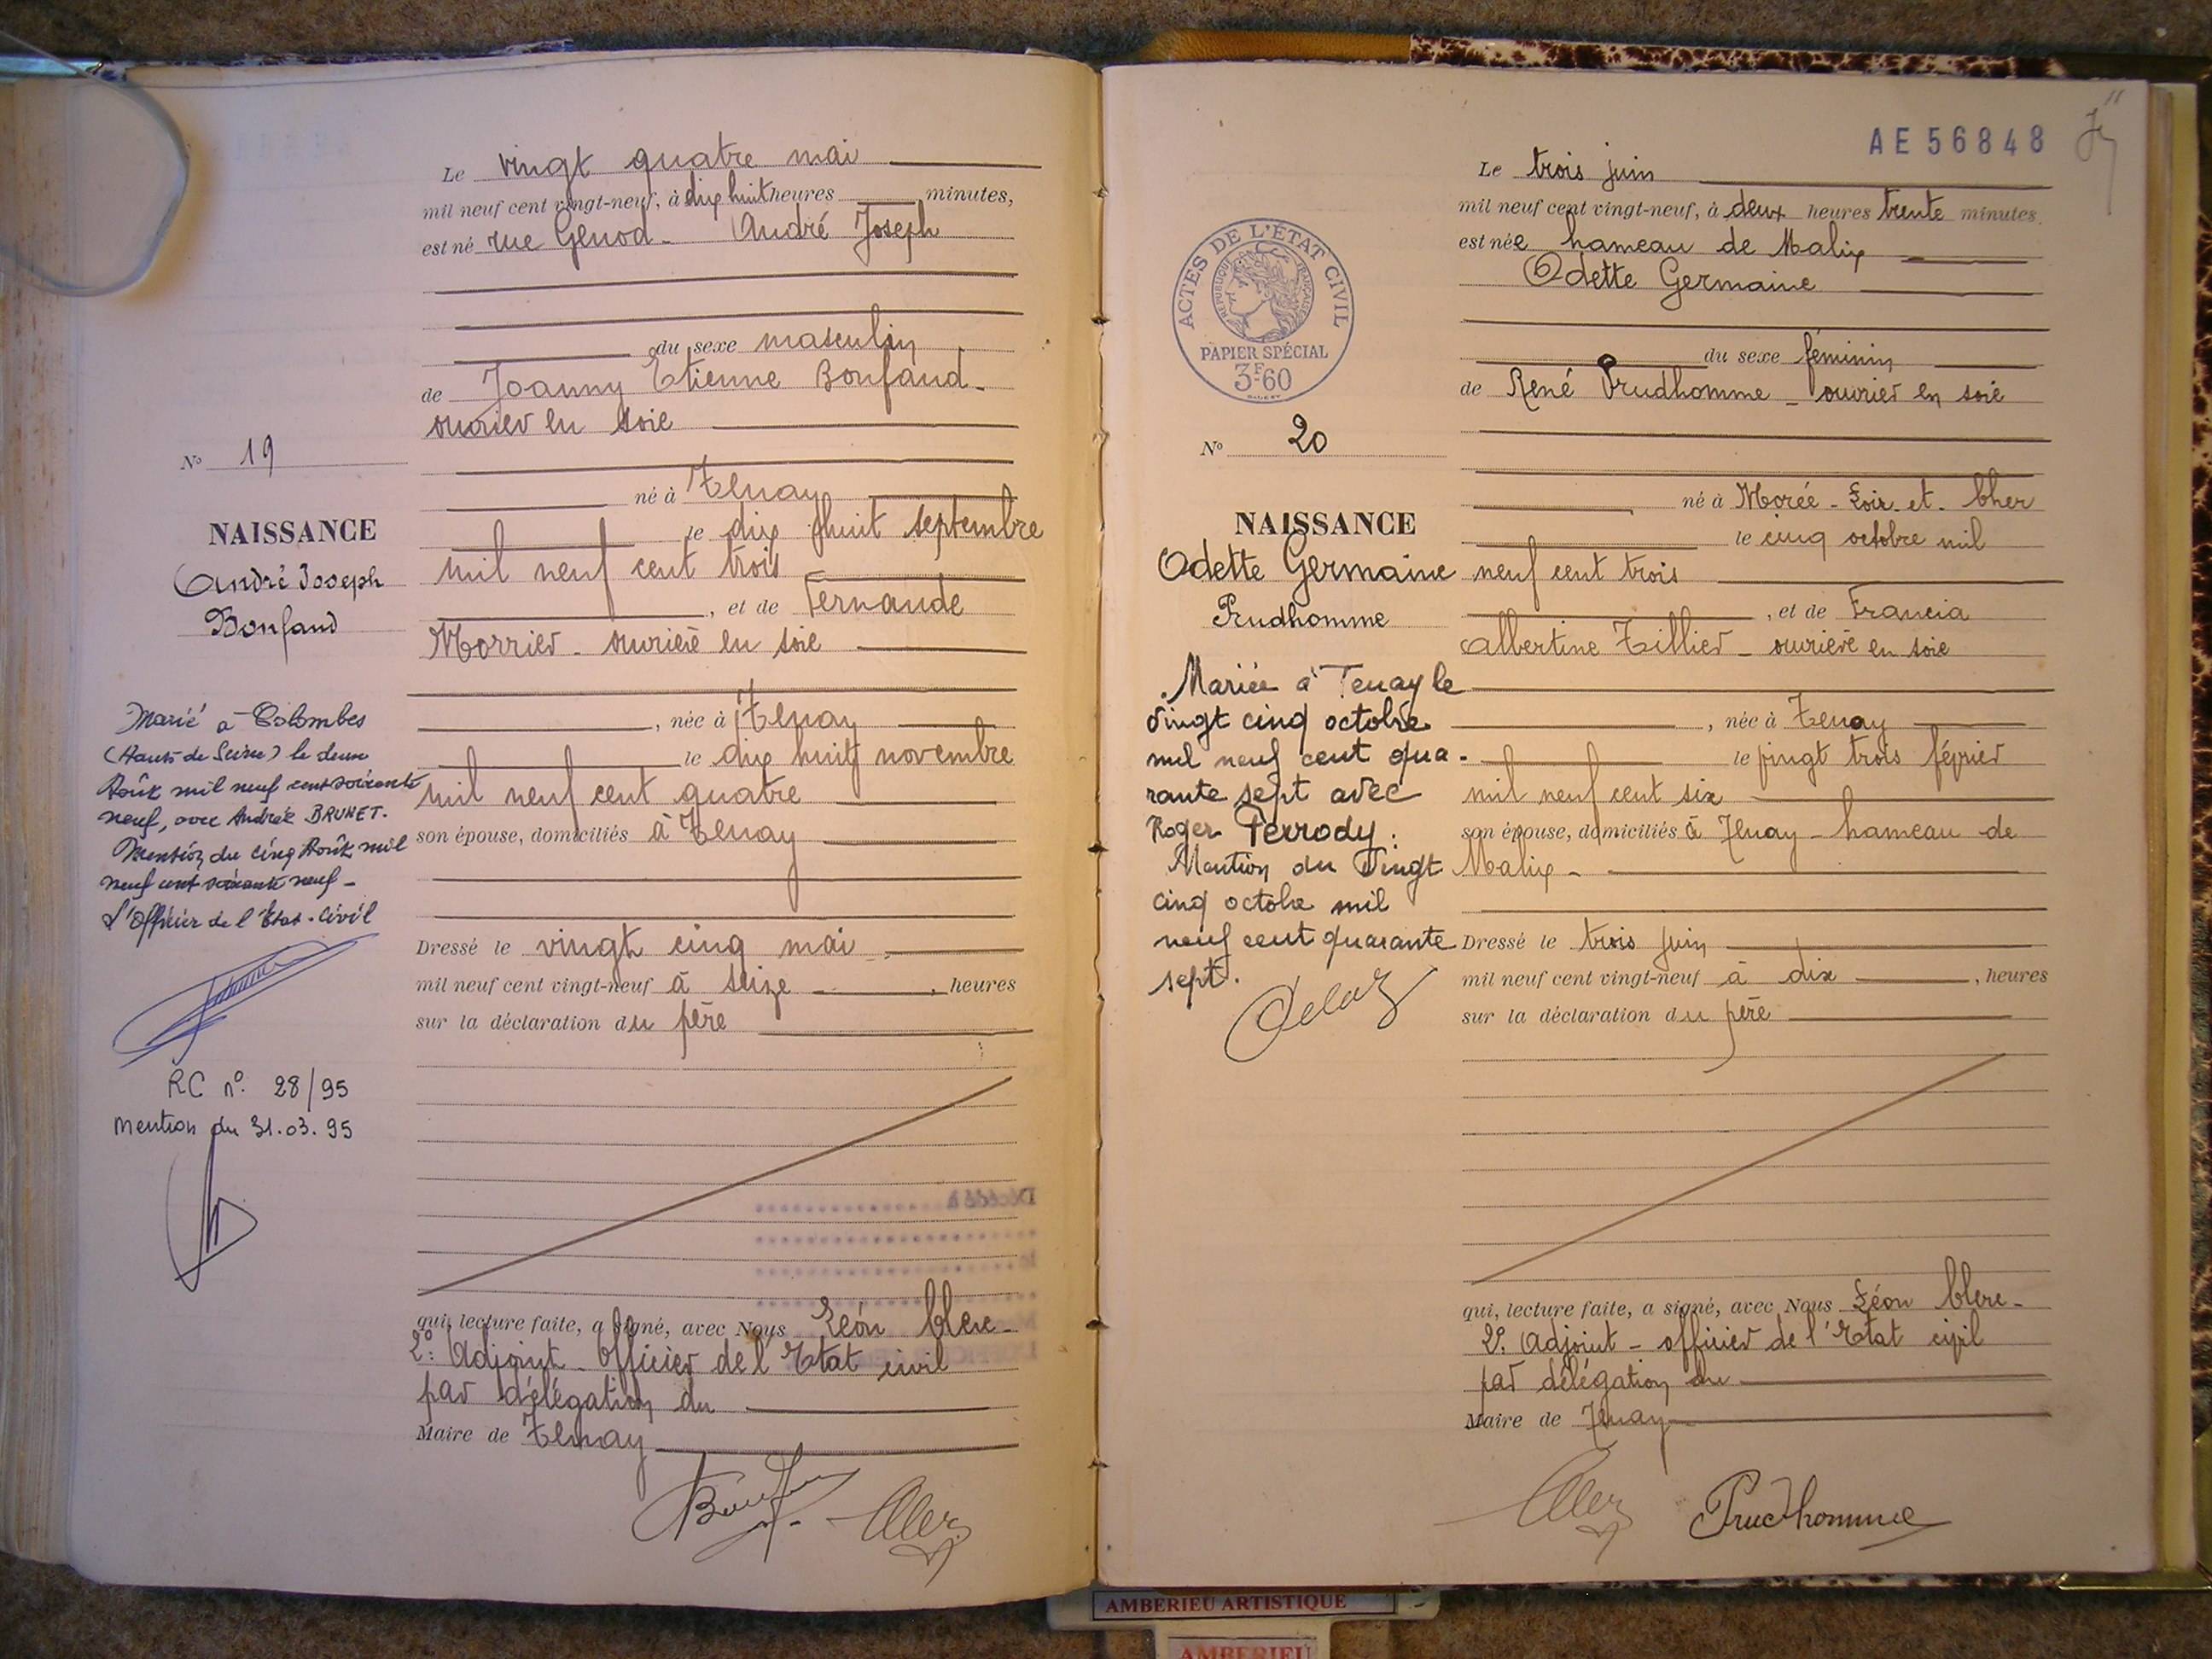 Le vingt quatre mai
mil neuf cent vingt-neuf, à dix huit heures minutes,
est né rue Genod - André Joseph
du sexe masculin
de Joanny Etienne Bonfand -
ouvrier en soie
né à Tenay
le dix huit septembre
mil neuf cent trois
, et de Fernande
Morrier - ouvrière en soie
, née à Tenay
le dix huit novembre
mil neuf cent quatre
son épouse, domiciliés à Tenay
Dressé le vingt cinq mai
mil neuf cent vingt-neuf à seize , heures
sur la déclaration du père
qui, lecture faite, a signé, avec Nous Léon Clerc -
2e Adjoint - Officier de l'Etat civil
par délégation du
Maire de Tenay
No 19
NAISSANCE
André Joseph
Bonfand
Marié à Colombes
(Hauts de Seine) le deux
Août mil neuf cent soixante
neuf, avec Andrée BRUNET.
Mention du cinq Août mil
neuf cent soixante neuf -
L'Officier de l'Etat-Civil
RC n° 28/95
mention du 31.03.95
Décédé à
le
AE 56848
Le trois juin
mil neuf cent vingt-neuf, à deux heures trente minutes
est née hameau de Malix
Odette Germaine
du sexe féminin
de René Prudhomme - ouvrier en soie
né à Morée - Loir-et-Cher
le cinq octobre mil
neuf cent trois
, et de Francia
Albertine Tillier - ouvrière en soie
, née à Tenay
le vingt trois février
mil neuf cent six
son épouse, domiciliés à Tenay - hameau de
Malix -
Dressé le trois juin
mil neuf cent vingt-neuf à dix , heures
sur la déclaration du père
qui, lecture faite, a signé, avec Nous Léon Clerc -
2e Adjoint - officier de l'Etat civil
par délégation du
Maire de Tenay
Prudhomme
ACTES DE L'ÉTAT CIVIL
RÉPUBLIQUE FRANÇAISE
PAPIER SPÉCIAL
3F60
No 20
NAISSANCE
Odette Germaine
Prudhomme
Mariée à Tenay le
vingt cinq octobre
mil neuf cent qua-
rante sept avec
Roger Perrody.
Mention du Vingt
cinq octobre mil
neuf cent quarante
sept.
AMBERIEU ARTISTIQUE
AMBERIEU